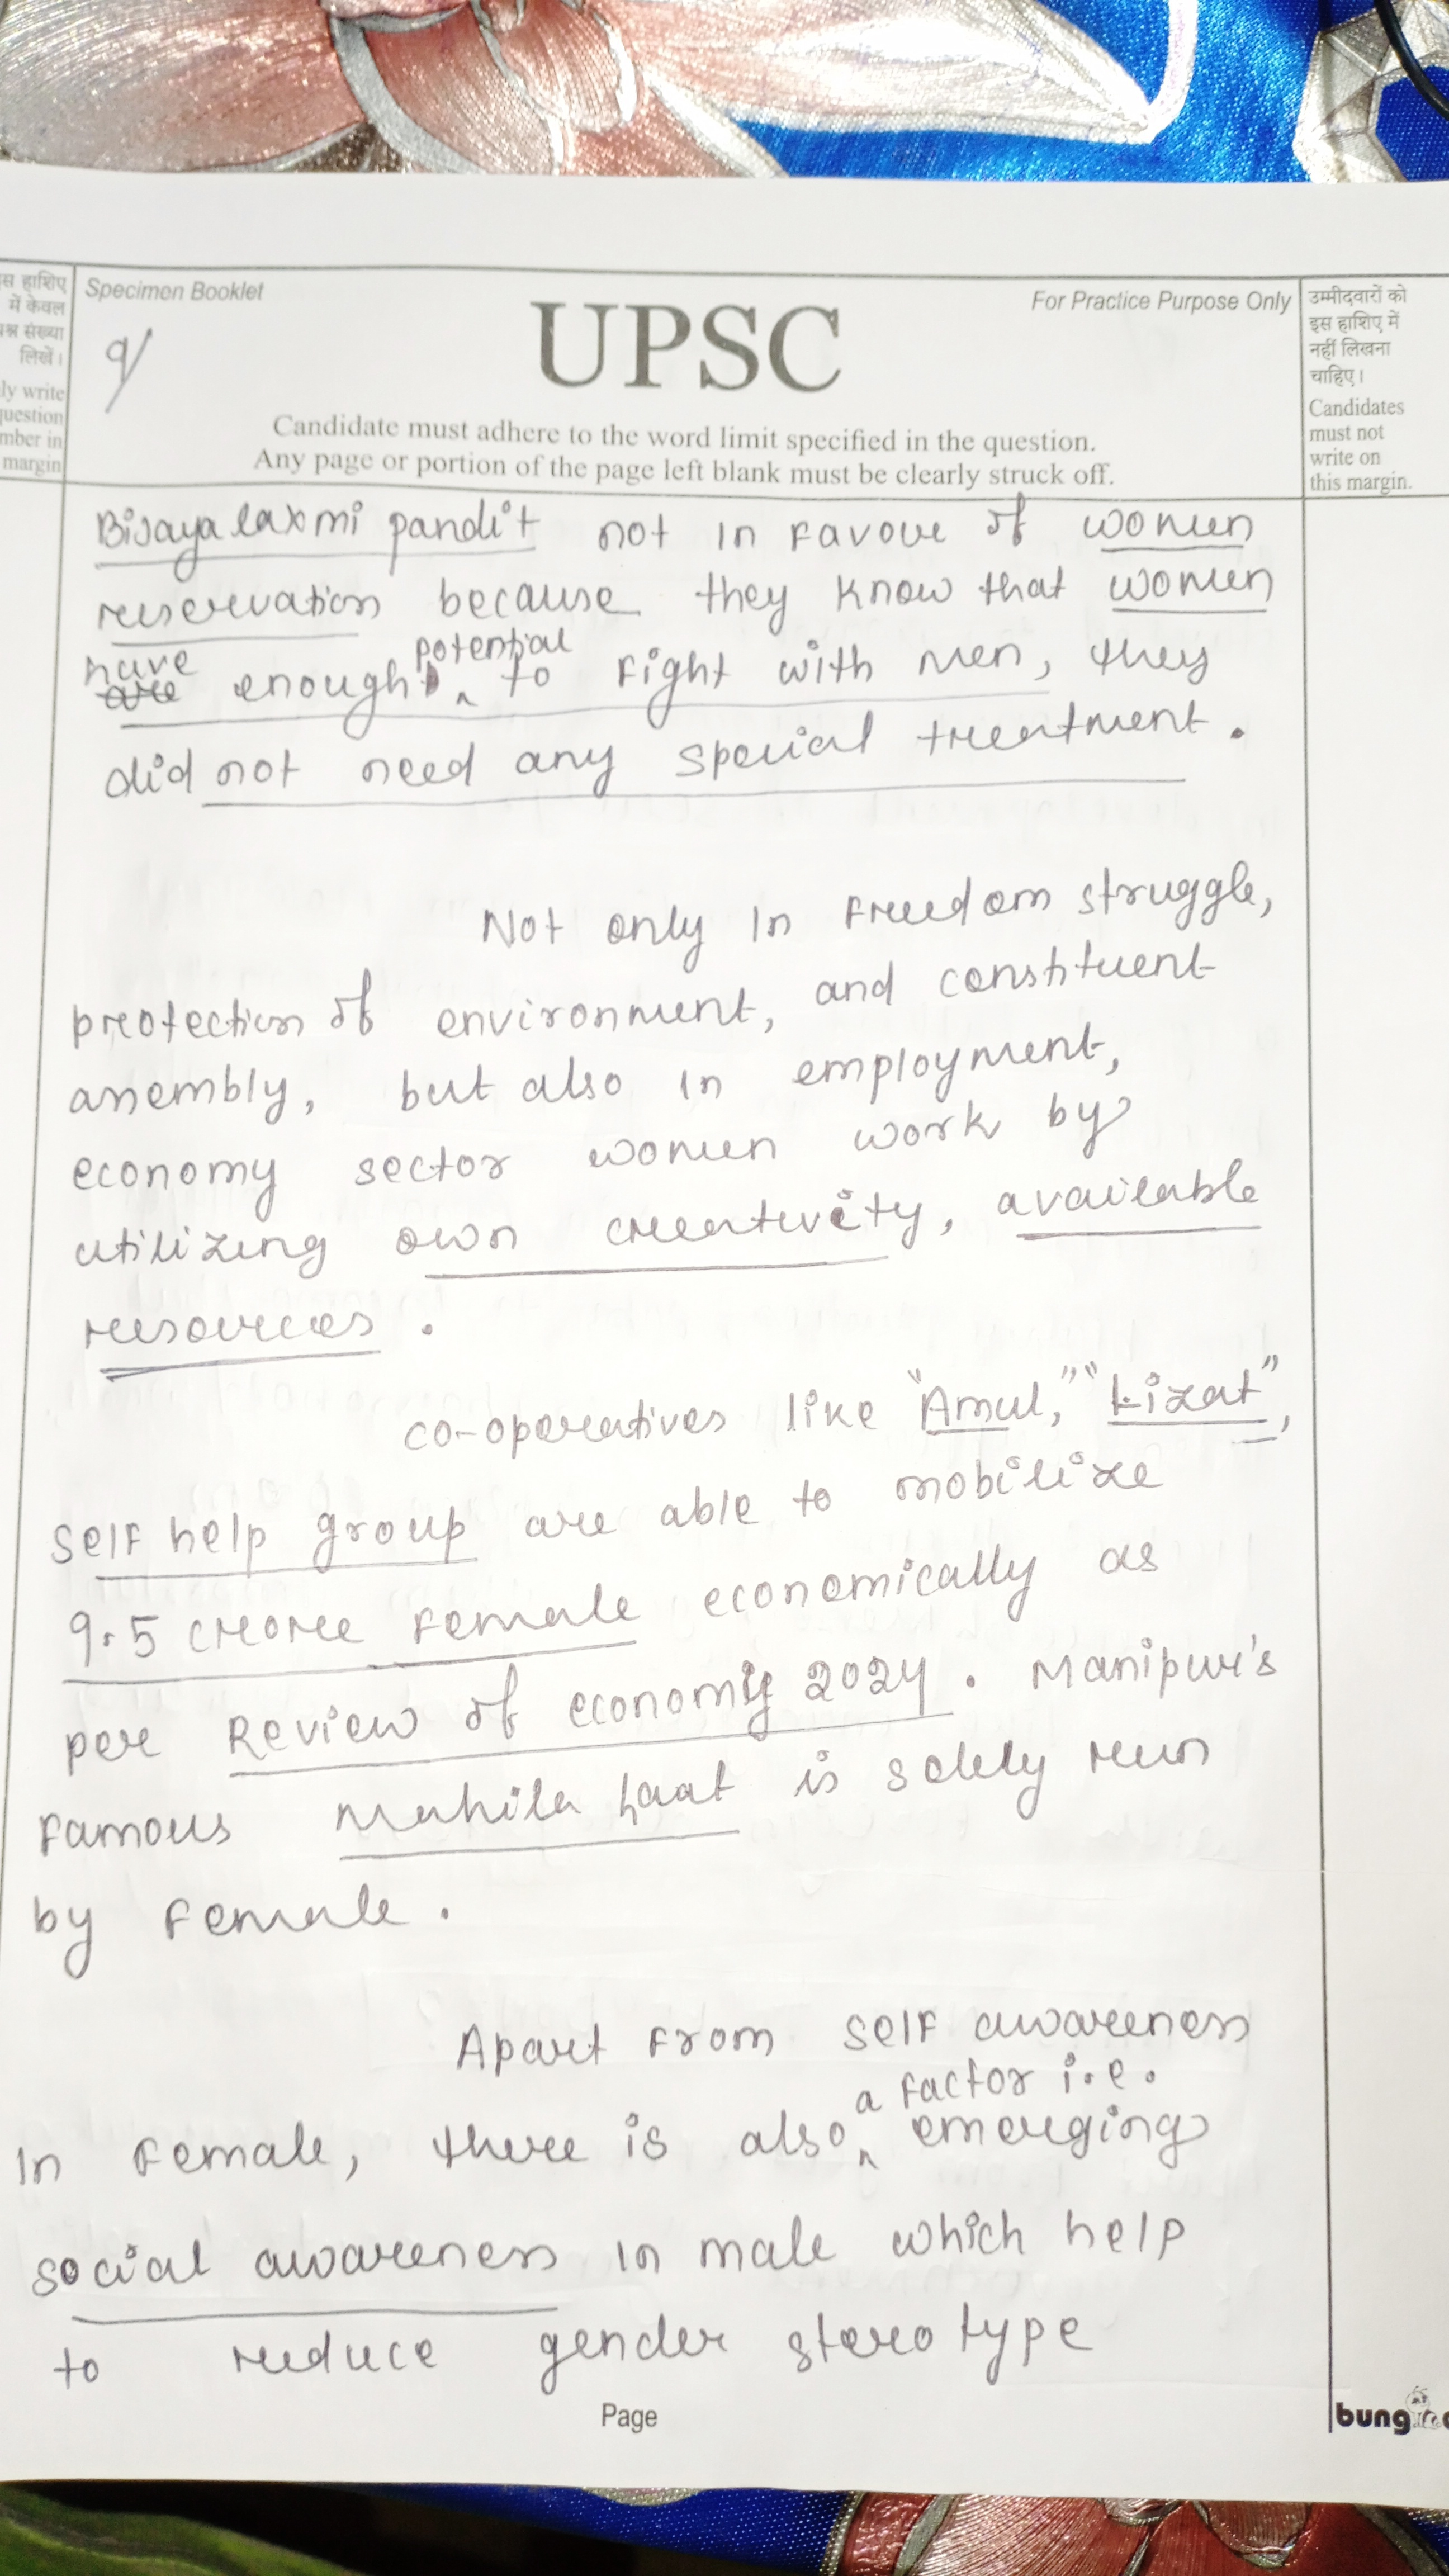 स हाशिए
में केवल
श्न संख्या
लिखें।
ly write
uestion
mber in
margin
Specimen Booklet
9/
UPSC
For Practice Purpose Only
Candidate must adhere to the word limit specified in the question.
Any page or portion of the page left blank must be clearly struck off.
उम्मीदवारों को
इस हाशिए में
नहीं लिखना
चाहिए।
Candidates
must not
write on
this margin.
Bijaya laxmi pandit not in favour of women
reservation because they know that women
have enough potential to fight with men, they
did not need any special treatment.
Not only in freedom struggle,
protection of environment, and constituent
assembly, but also in employment,
economy sector women work by
utilizing own creativity, available
resources.
co-operatives like "Amul," "Lizat",
self help group are able to mobilize
9.5 crore female economically as
per Review of economy 2024. Manipur's
famous Mahila haat is solely run
by female.
Apart from self awareness
in female, there is also a factor i.e. emerging
social awareness in male which help
to reduce gender stereotype
Page
bung